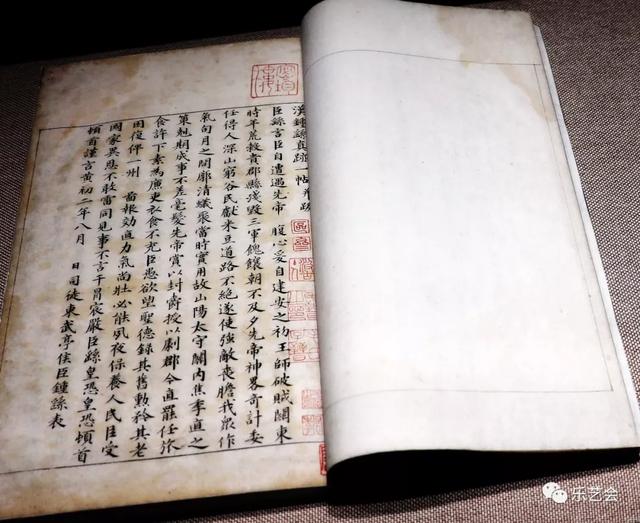 漢鍾繇真蹟一帖
臣繇言臣自遭遇先帝 腹心爰自建安之初王師破賊關東
時年荒穀貴郡縣殘毀三軍餽饟朝不及夕先帝神略奇計委
任得人深山窮谷民獻米豆道路不絕遂使強敵喪膽我眾作
氣旬月之間廓清蟻聚當時實用故山陽太守關內焦季直之
策剋期成事不差毫髮先帝賞以封爵授以劇郡今直罷任 
食許下素為廉吏衣食不充臣愚欲望聖德錄其舊勳矜其老
困復俾一州 圖報効直力氣尚壯必能夙夜保養人民臣受
國家異恩不敢雷同見事不言干冒宸嚴臣繇皇恐皇恐頓首
頓首謹言黃初二年八月 日司徒東武亭侯臣鍾繇表
乐艺会